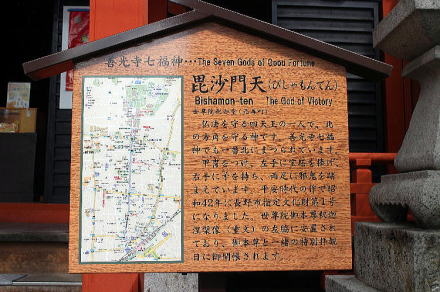 善光寺七福神…The Seven Gods of Good Fortune
毘沙門天(びしゃもんてん)
Bishamon-ten The God of Victory
仏法を守る四天王の一人で、北
の方角を守る神です。善光寺七福
神でも一番北にまつられています。
甲冑をつけ、左手に宝塔を捧げ、
右手に矛を持ち、両足に邪鬼を踏
まえています。平安時代の作で昭
和42年に長野市指定文化財第1号
になりました。世尊院御本尊釈迦
涅槃像(重文)の左脇に安置され
ており、御本尊と一緒の特別拝観
日に御開帳されます。